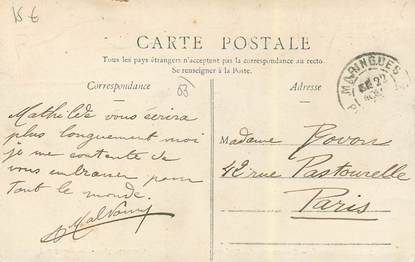 15€
CARTE POSTALE
Tous les pays étrangers n'acceptent pas la correspondance au recto.
Se renseigner à la Poste.
Correspondance
Adresse
63
MARINGUES
22
Mathilde vous écrira
plus longuement moi
je me contente de
vous embrasser pour
tout le monde.
Madame Bovon
42 rue Pastourelle
Paris